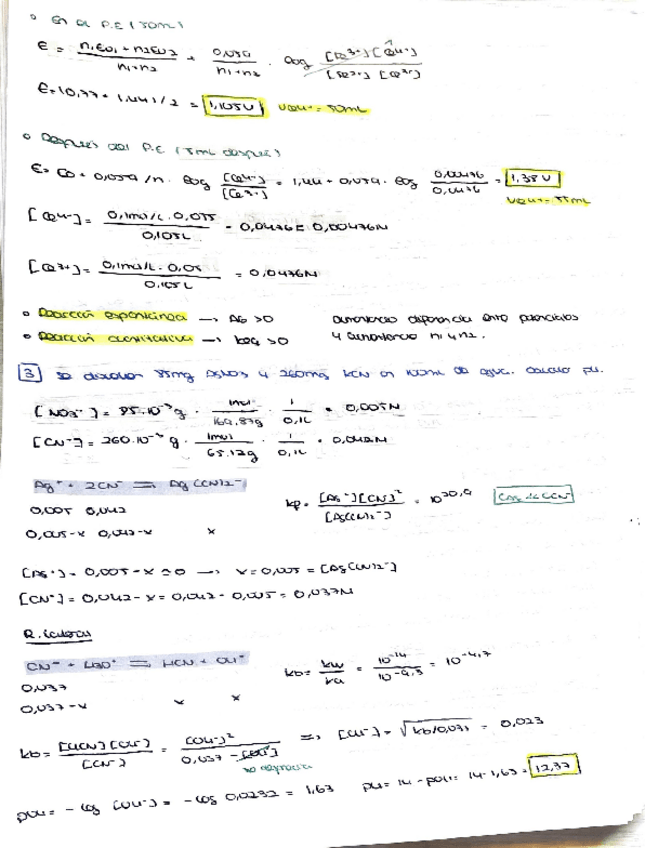 o En el P.E (50mL)
E = n₁E₀₁ + n₂E₀₂ / n₁+n₂ + 0,059 / n₁+n₂ · log [Fe³⁺][Ce⁴⁺] / [Fe²⁺][Ce³⁺]
E = (0,77 + 1,44) / 2 = 1,105V VCe⁴⁺ = 50mL
o Después del P.E (5mL después)
E = E₀ + 0,059/n · log [Ce⁴⁺] / [Ce³⁺] = 1,44 + 0,059 · log 0,00476 / 0,0476 = 1,38 V
VCe⁴⁺ = 55mL
[Ce⁴⁺] = 0,1mol/L · 0,055 / 0,105L - 0,0476 = 0,00476M
[Ce³⁺] = 0,1mol/L · 0,05 / 0,105L = 0,0476M
o Reacción espontánea → ΔG >0 aumentando diferencia entre potenciales
o Reacción cuantitativa → keq >0 y aumentando n₁ y n₂.
3 se disuelven 85mg AgNO₃ y 260mg KCN en 100mL de agua. Calcular pH.
[NO₃⁻] = 85·10⁻³g · 1mol / 169,87g · 1 / 0,1L = 0,005M
[CN⁻] = 260·10⁻³ g · 1mol / 65,12g · 1 / 0,1L = 0,042M
Ag⁺ + 2CN⁻ ⇌ Ag(CN)₂⁻
0,005 0,042
0,005-x 0,042-x x
kp = [Ag⁺][CN⁻]² / [Ag(CN)₂⁻] = 10^20,9
[Ag⁺] = 0,005 - x ≃ 0 → x = 0,005 = [Ag(CN)₂⁻]
[CN⁻] = 0,042 - x = 0,042 - 0,005 = 0,037M
CN⁻ + H₂O ⇌ HCN + OH⁻
0,037
0,037-x x x
kb = kw / ka = 10⁻¹⁴ / 10⁻⁹,³ = 10⁻⁴,⁷
kb = [HCN][OH⁻] / [CN⁻] = [OH⁻]² / 0,037 - [OH⁻] ⇒ [OH⁻] = √kb/0,037 = 0,023
pOH = - log [OH⁻] = - log 0,0232 = 1,63 pH = 14 - pOH = 14 - 1,63 = 12,37